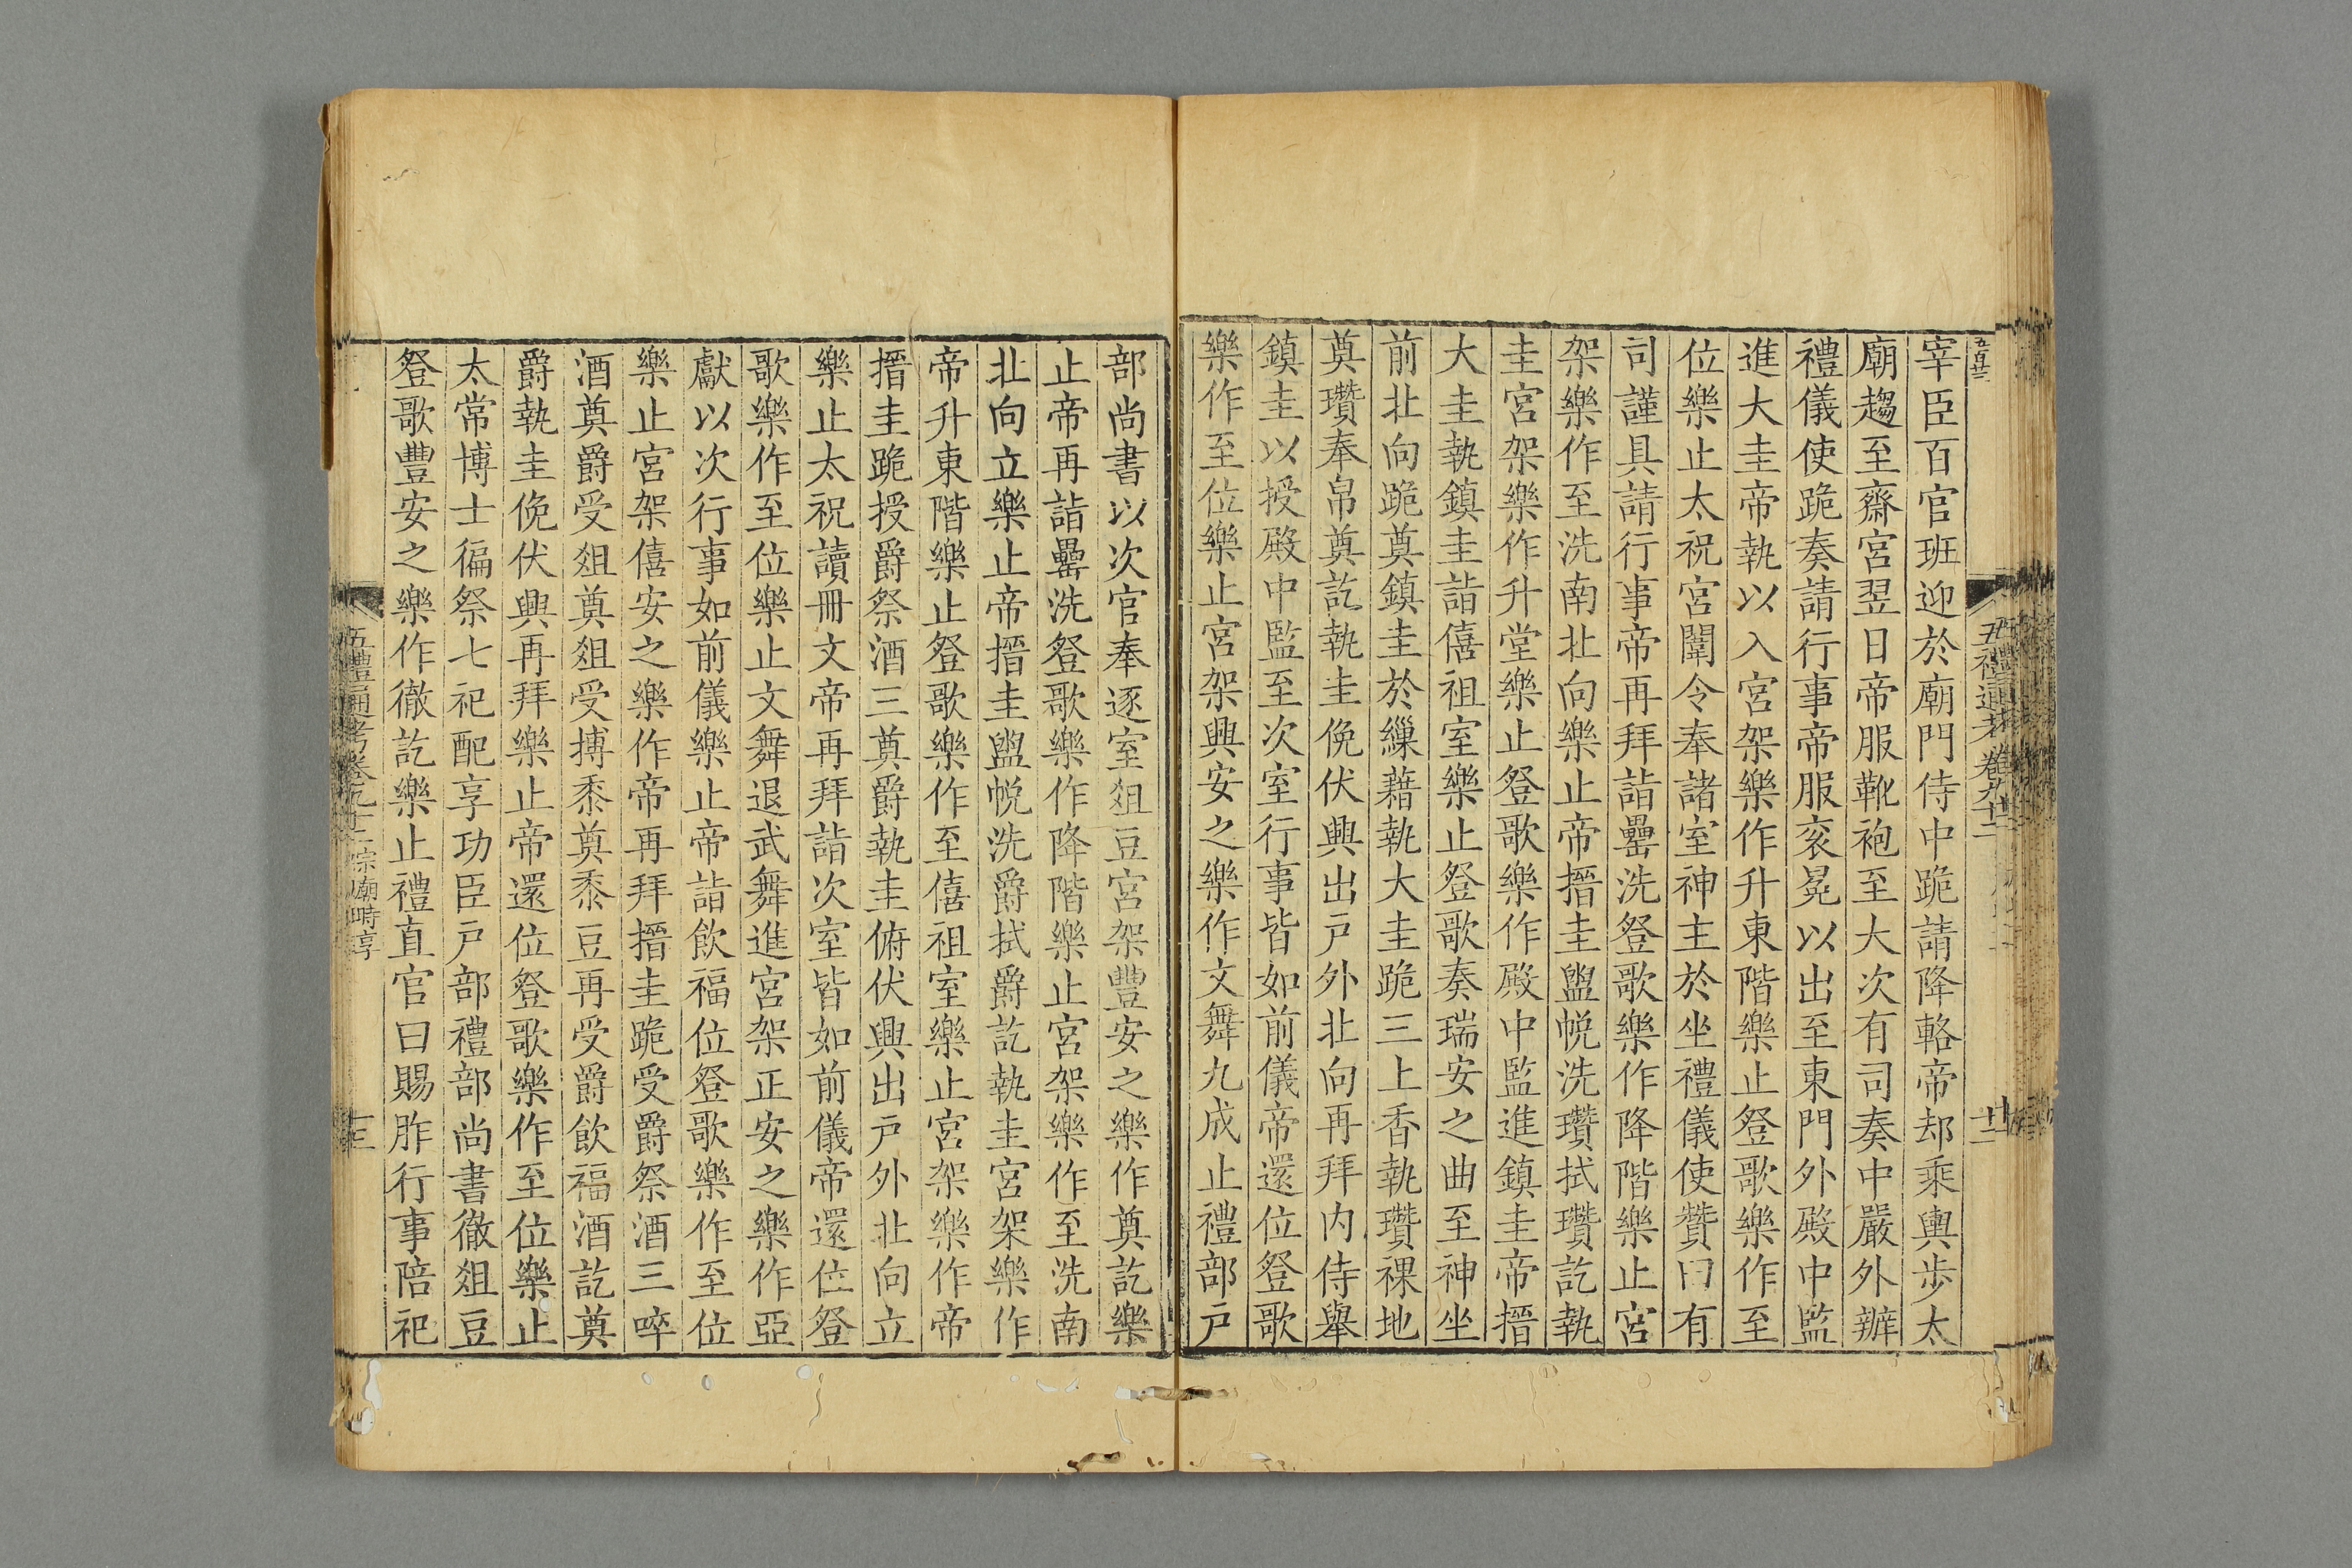 宰臣百官班迎於廟門侍中跪請降輅帝却乘輿步太
廟趨至齋宮翌日帝服靴袍至大次有司奏中嚴外辦
禮儀使跪奏請行事帝服衮冕以出至東門外殿中監
進大圭帝執以入宮架樂作升東階樂止登歌樂作至
位樂止太祝宮闈令奉諸室神主於坐禮儀使贊曰有
司謹具請行事帝再拜詣罍洗登歌樂作降階樂止宮
架樂作至洗南北向樂止帝搢圭盥帨洗瓚拭瓚訖執
圭宮架樂作升堂樂止登歌樂作殿中監進鎮圭帝搢
大圭執鎮圭詣僖祖室樂止登歌奏瑞安之曲至神坐
前北向跪奠鎮圭於繅藉執大圭跪三上香執瓚祼地
奠瓚奉帛奠訖執圭俛伏興出戶外北向再拜內侍舉
鎮圭以授殿中監至次室行事皆如前儀帝還位登歌
樂作至位樂止宮架興安之樂作文舞九成止禮部戶
部尚書以次官奉逐室俎豆宮架豐安之樂作奠訖樂
止帝再詣罍洗登歌樂作降階樂止宮架樂作至洗南
北向立樂止帝搢圭盥帨洗爵拭爵訖執圭宮架樂作
帝升東階樂止登歌樂作至僖祖室樂止宮架樂作帝
搢圭跪授爵祭酒三奠爵執圭俯伏興出戶外北向立
樂止太祝讀冊文帝再拜詣次室皆如前儀帝還位登
歌樂作至位樂止文舞退武舞進宮架正安之樂作亞
獻以次行事如前儀樂止帝詣飲福位登歌樂作至位
樂止宮架僖安之樂作帝再拜搢圭跪受爵祭酒三啐
酒奠爵受俎奠俎受搏黍奠黍豆再受爵飲福酒訖奠
爵執圭俛伏興再拜樂止帝還位登歌樂作至位樂止
太常博士徧祭七祀配享功臣戶部禮部尚書徹俎豆
登歌豐安之樂作徹訖樂止禮直官曰賜胙行事陪祀
五禮通考卷九十二 宗廟時享 十三